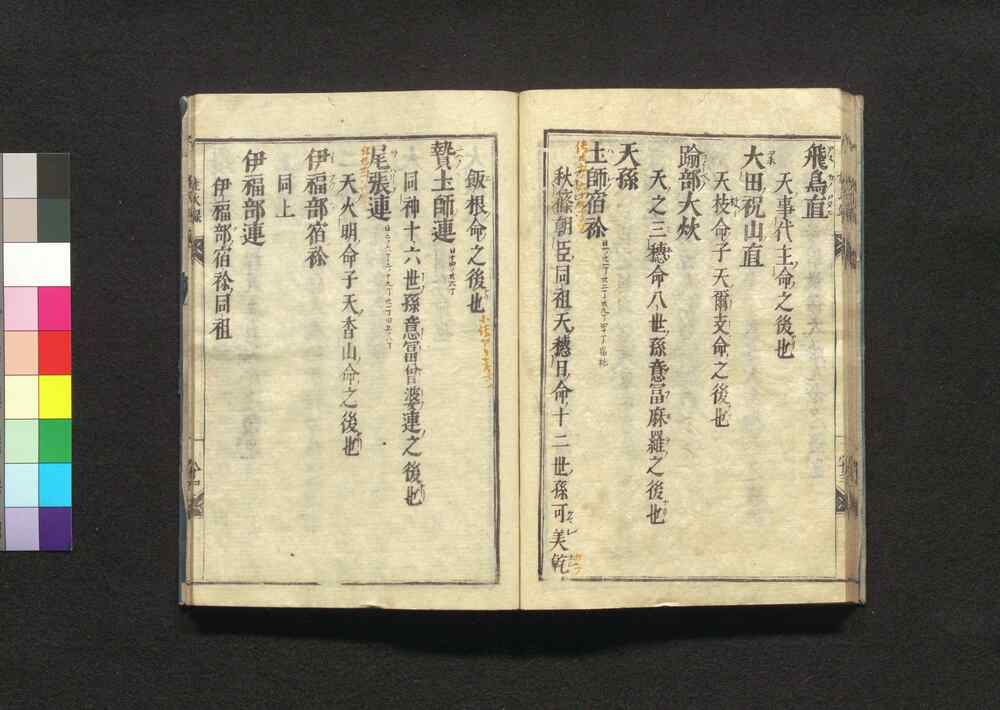 飛鳥直
天事代主命之後也
大田祝山直
天枝命子天爾支命之後也
踰部大炊
天之三穂命八世孫意冨麻羅之後也
天孫
土師宿祢
秋篠朝臣同祖天穂日命十二世孫可美乾
飯根命之後也
贄土師連
同神十六世孫意冨曾婆連之後也
尾張連
天火明命子天香山命之後也
伊福部宿祢
同上
伊福部連
伊福部宿祢同祖